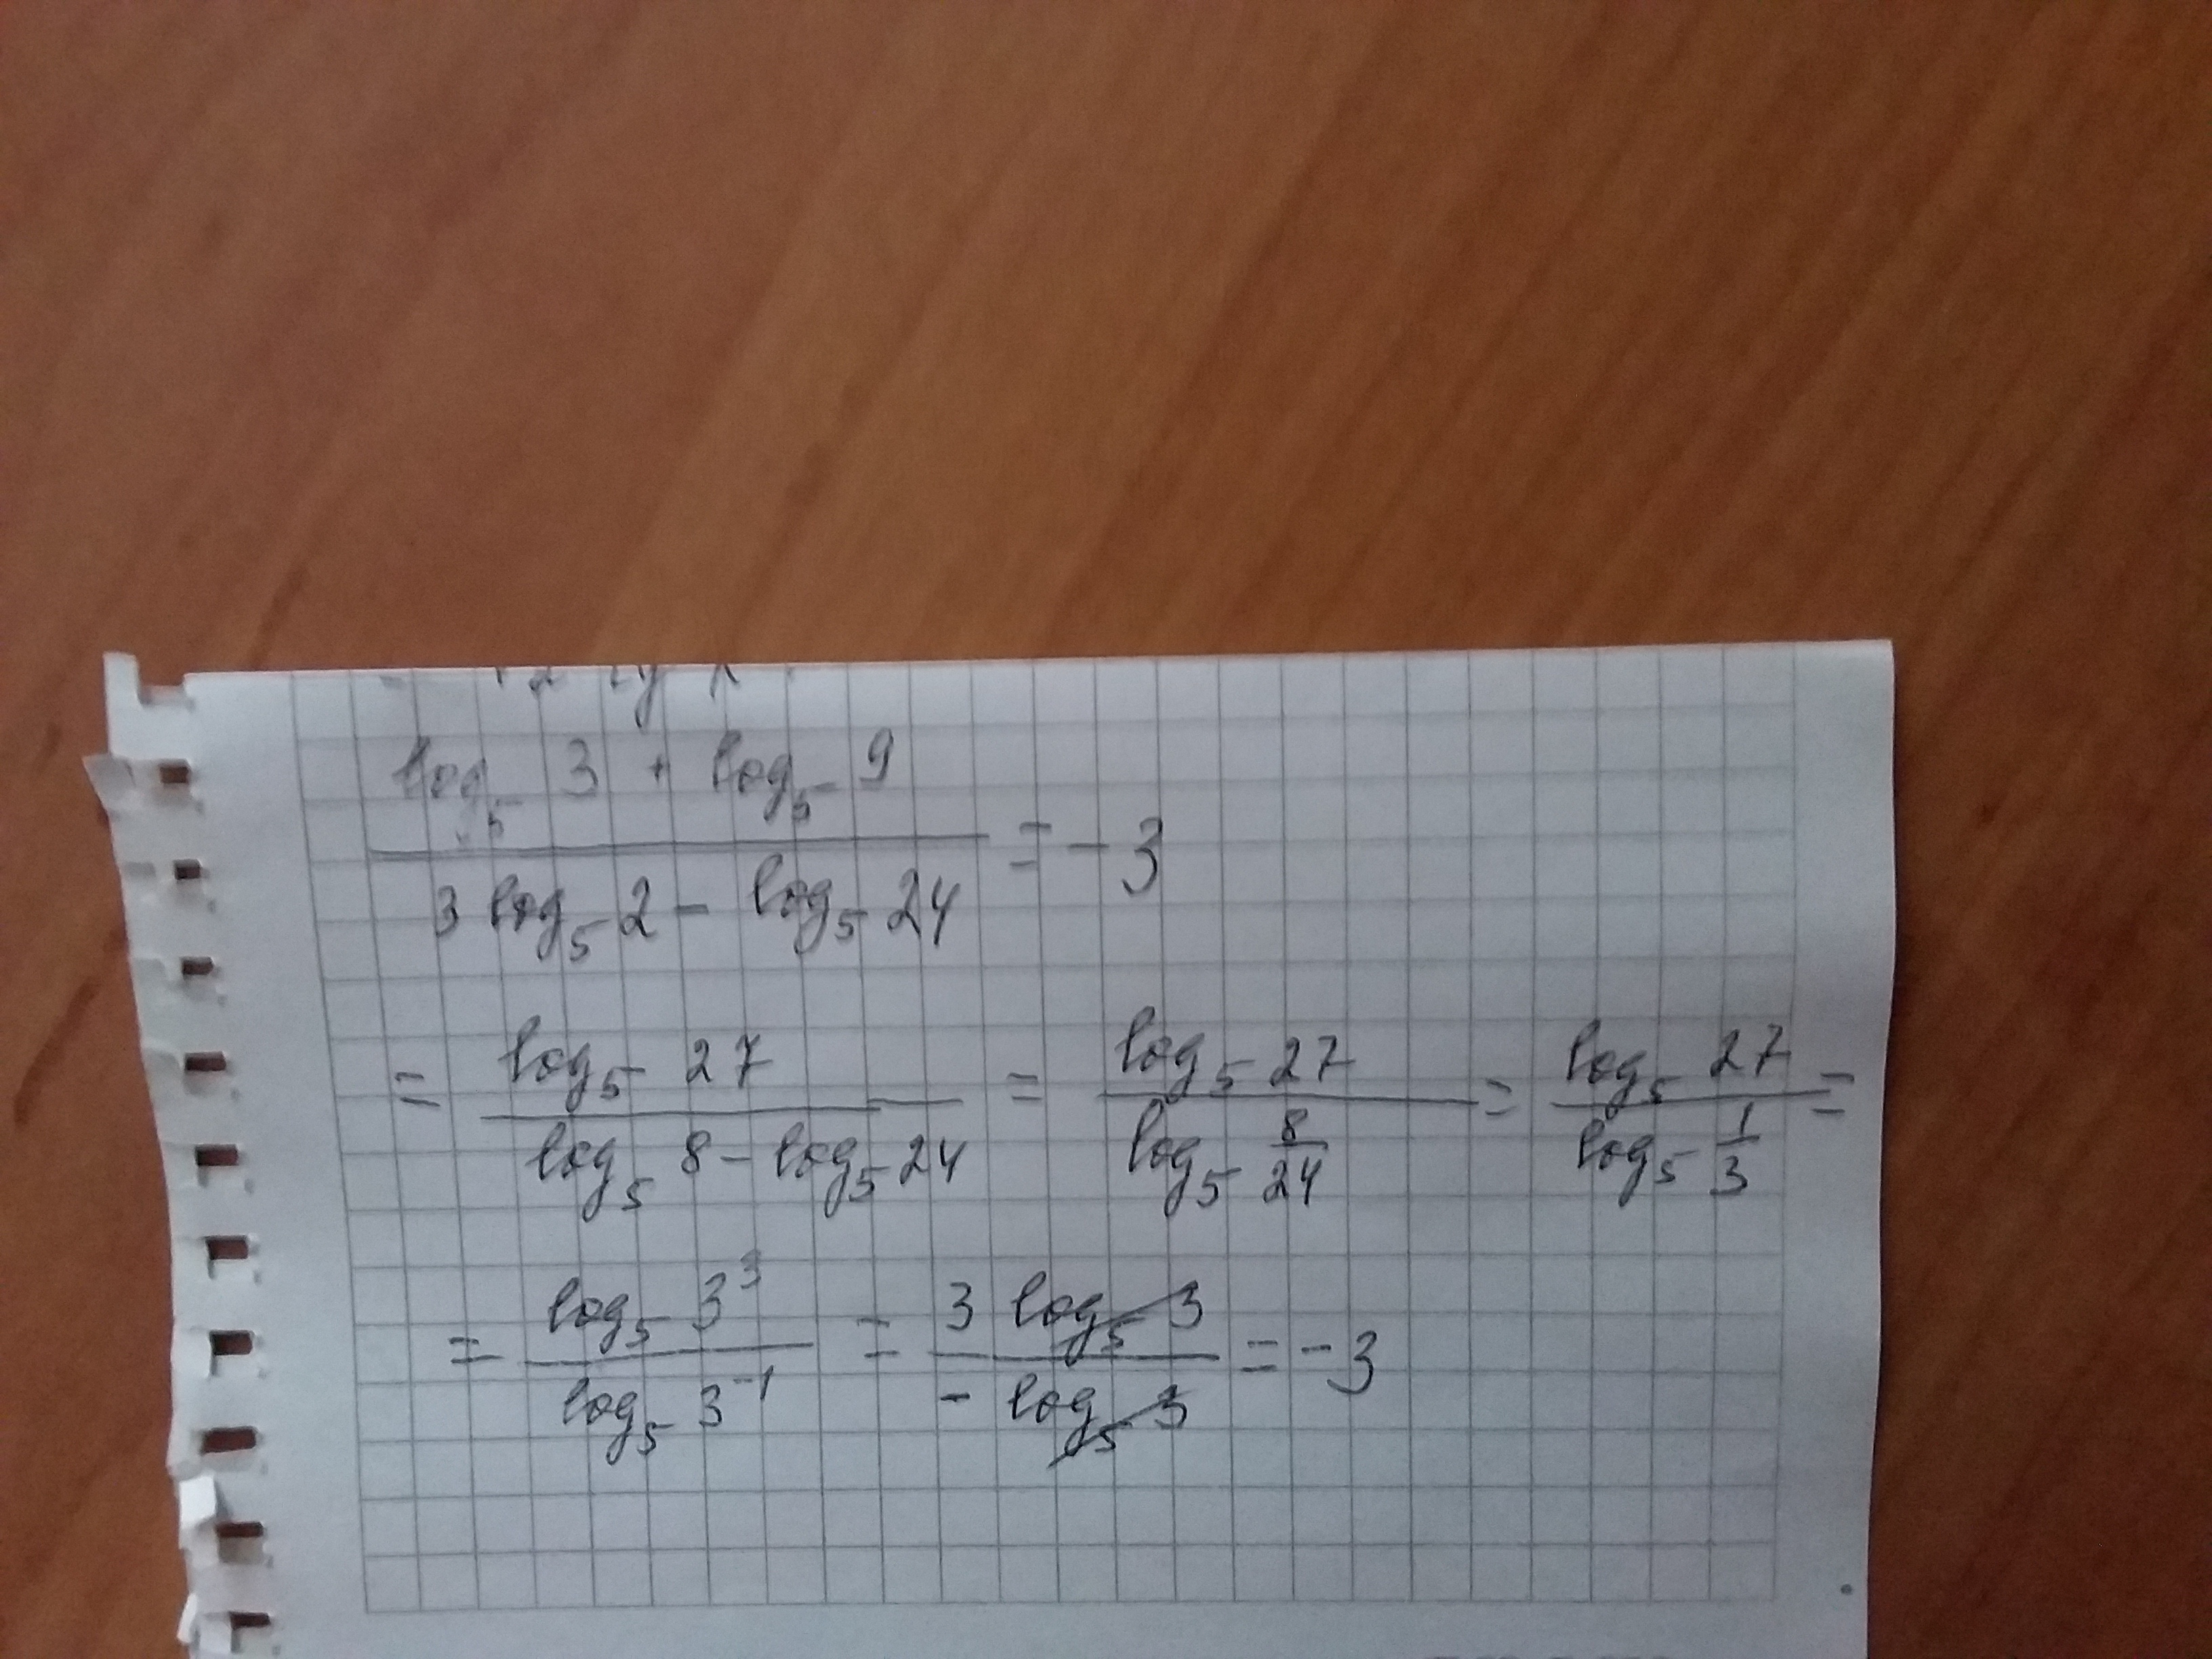 log₅ 3 + log₅ 9
――――――――― = -3
3 log₅ 2 - log₅ 24
= log₅ 27 / (log₅ 8 - log₅ 24) = log₅ 27 / log₅ (8/24) = log₅ 27 / log₅ (1/3) =
= log₅ 3³ / log₅ 3⁻¹ = 3 log₅ 3 / (- log₅ 3) = -3